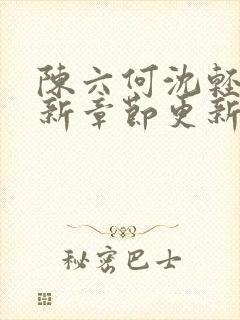 陳六何沈軽
新章節更新
秘密巴士